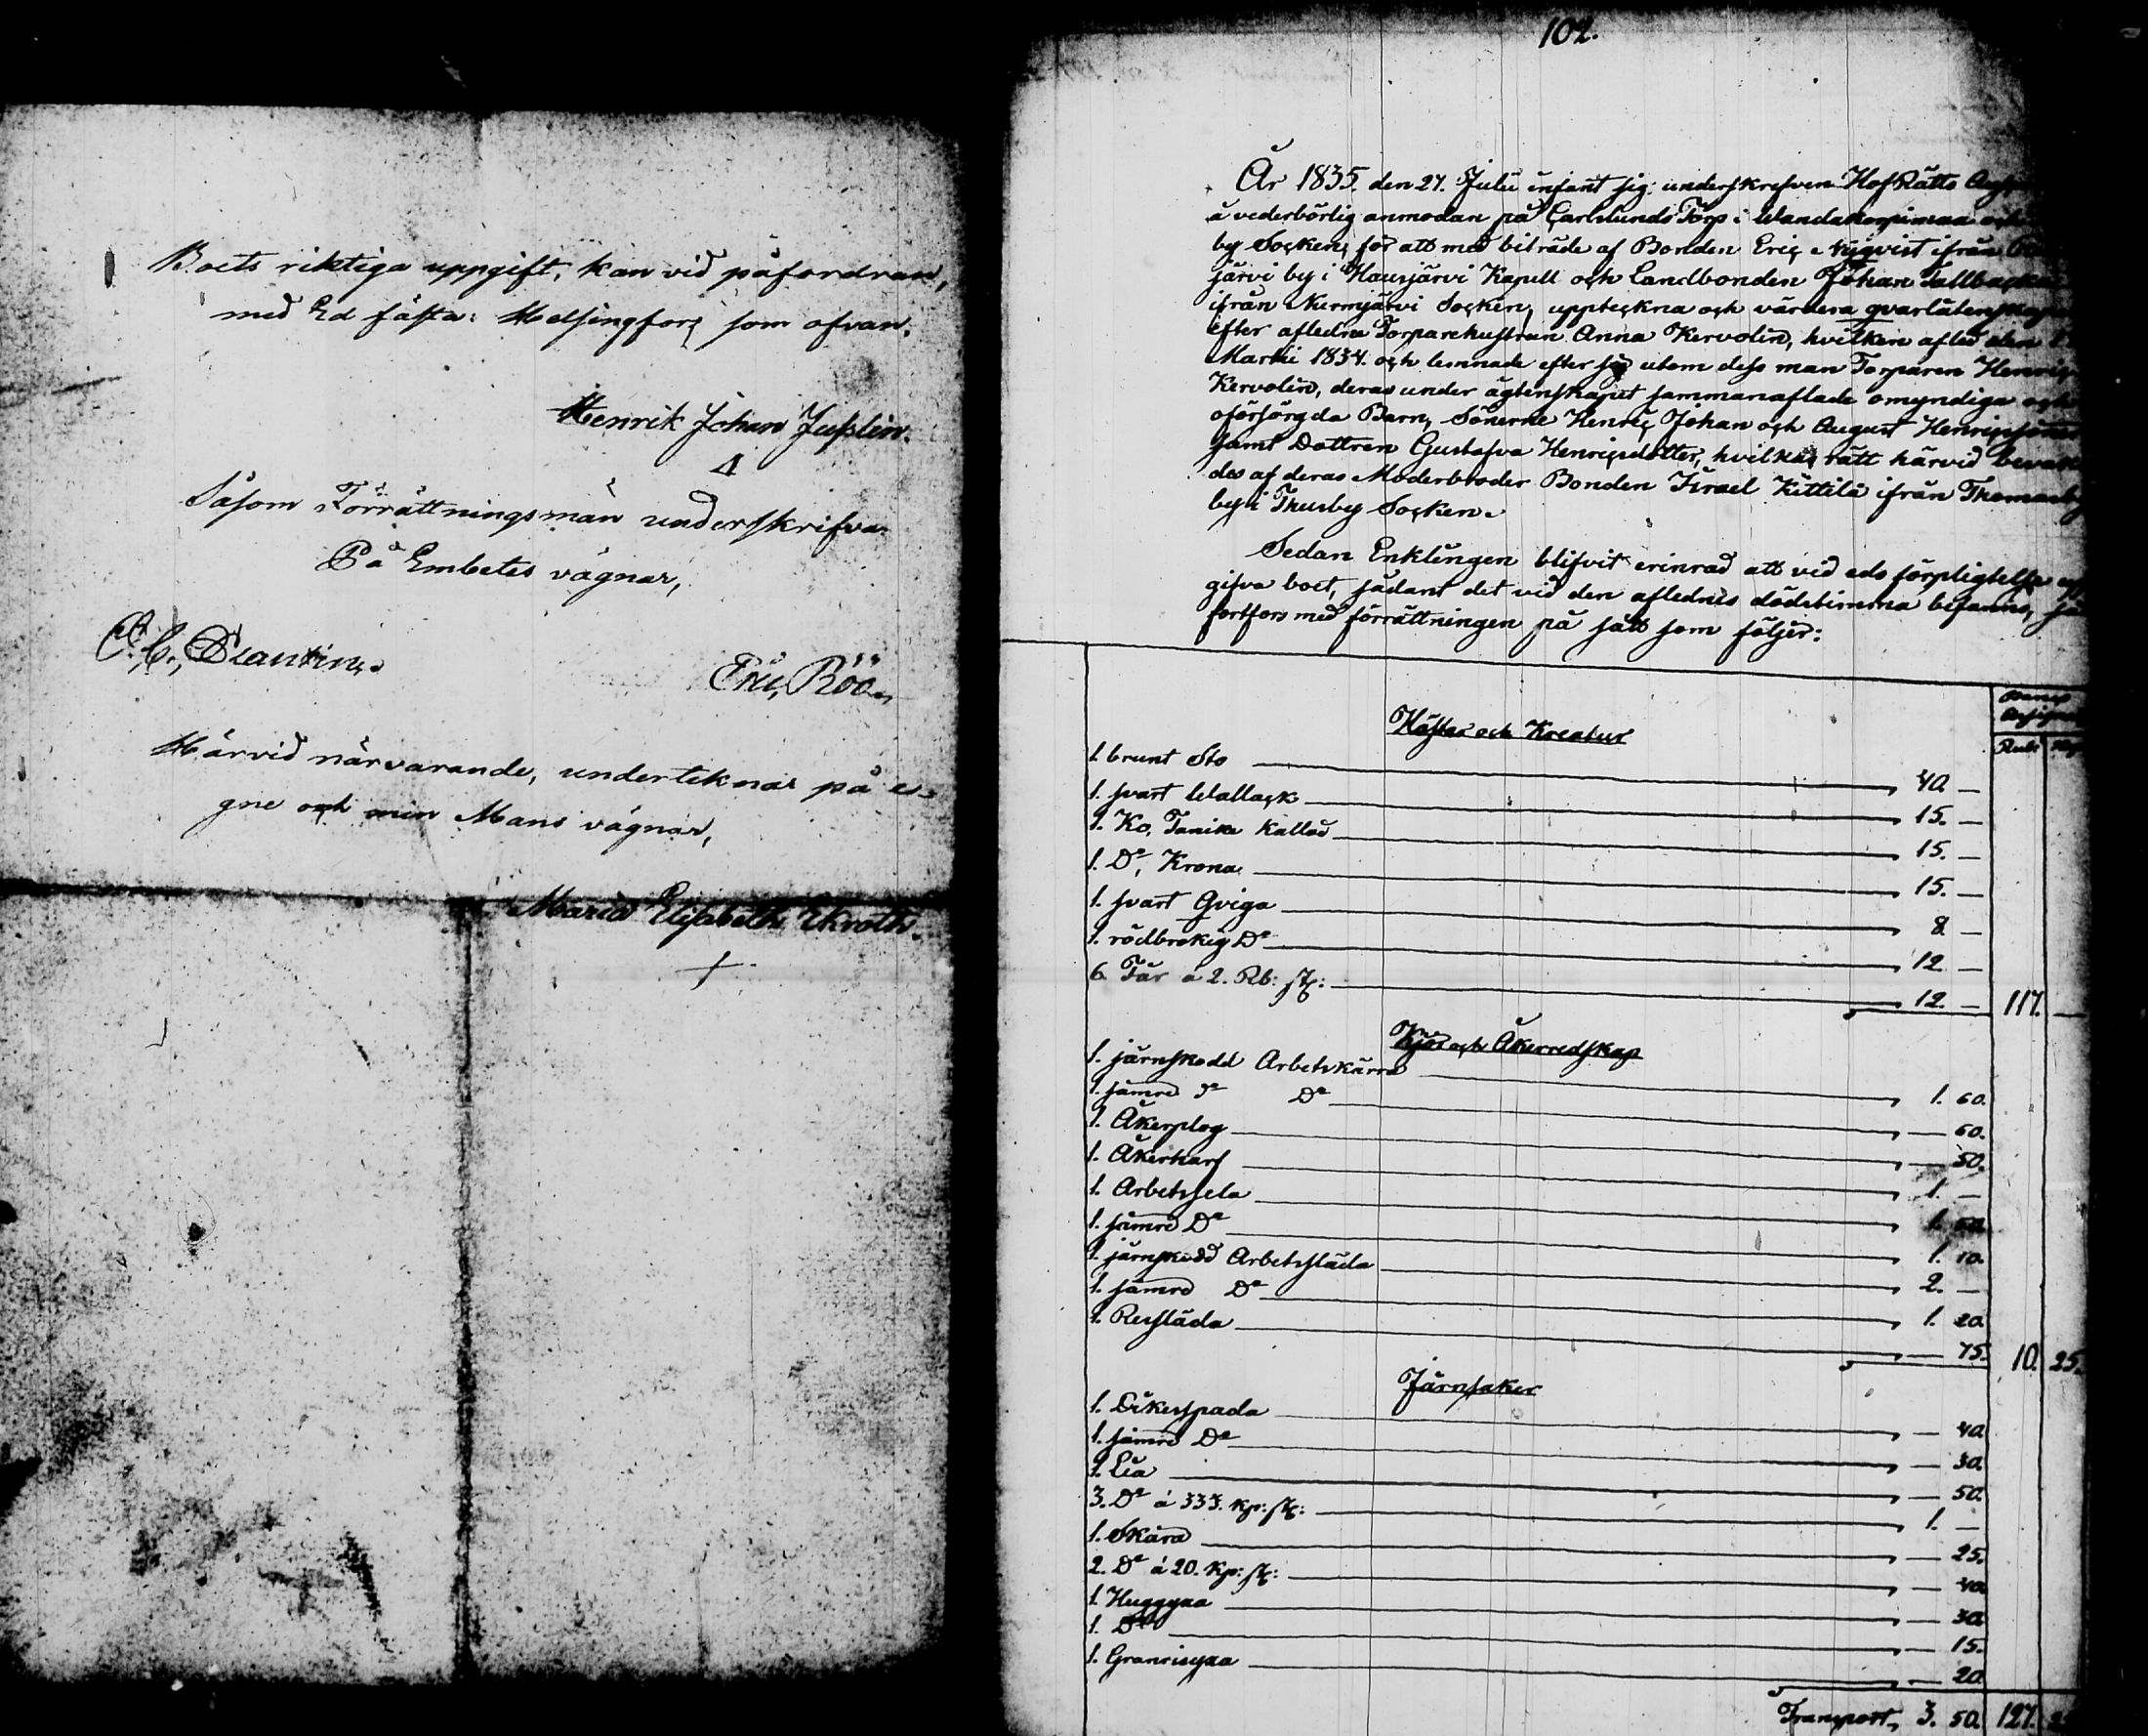 Boets riktiga uppgift, kan vid påfordran,
med Ed fästa: Helsingfors som ofvan.
Henrik Johan Juslin.
Såsom Förrättningsmän underskrifva
På Embetes vägnar,
Eric Röö
Härvid närvarande, undertecknar på e-
gne och min Mans vägnar,
Maria Elisabeth Ekroth.
102.
År 1835. den 27. Julii infant sig underskrefven HofRätts
å vederbörlig anmodan på Carlslunds Torp i Wandakorpimaa och
by Socken, för att med biträde af Bonden Eric Nyqvist ifrån
järvi by i Hausjärvi Kapell och Landbonden Johan Tallbacka
ifrån Nurmjärvi Socken, uppteckna och värdera qvarlåtenskapen
efter afledna Torparehustrun Anna Kervolin, hvilken afled den
Martii 1834. och lemnade efter sig utom dess man Torparen Henric
Kervolin, deras under ägtenskapet sammanaflade omyndiga och
oförsörgda Barn, Sönerne Henric Johan och August Henricssöner
samt Dottren Gustafva Henricsdotter, hvilkas rätt härvid bevak
des af deras Moderbroder Bonden Israel Kittilä ifrån Thomasby
by i Thusby Socken.
Sedan Enklingen blifvit erinrad att vid eds förpligtelse upp
gifva boet, sådant det vid den aflednes dödstimma befanns,
fortfors med förrättningen på sätt som följer:
Rub: Kop
Hästar och Kreatur
1. brunt Sto 40. —
1. svart Wallack 15. —
1. Ko, Tanike kallad 15. —
1. Do, Krona 15. —
1. svart Qviga 8. —
1. rödbrokig Do 12. —
6. Får à 2. Rb: st: 12. — 117. —
Kjör och Åkerredskap
1. järnskodd Arbetskärra 1. 60.
1. sämre do Do — 60.
1. Åkerplog — 50.
1. Åkerharf 1. —
1. Arbetssela 1. 50.
1. sämre Do 1. 10.
1. järnskodd Arbetssläda 2. —
1. sämre Do 1. 20.
1. Ressläda — 75. 10. 25.
Järnsaker
1. Dikesspada — 40.
1. sämre Do — 30.
1. Lia — 50.
3. Do à 33⅓. Kp: st: 1. —
1. Skära — 25.
2. Do à 20. Kp: st: — 40.
1. Huggyxa — 30.
1. Do — 15.
1. Granrisyxa — 20.
Transport, 3. 50. 127.